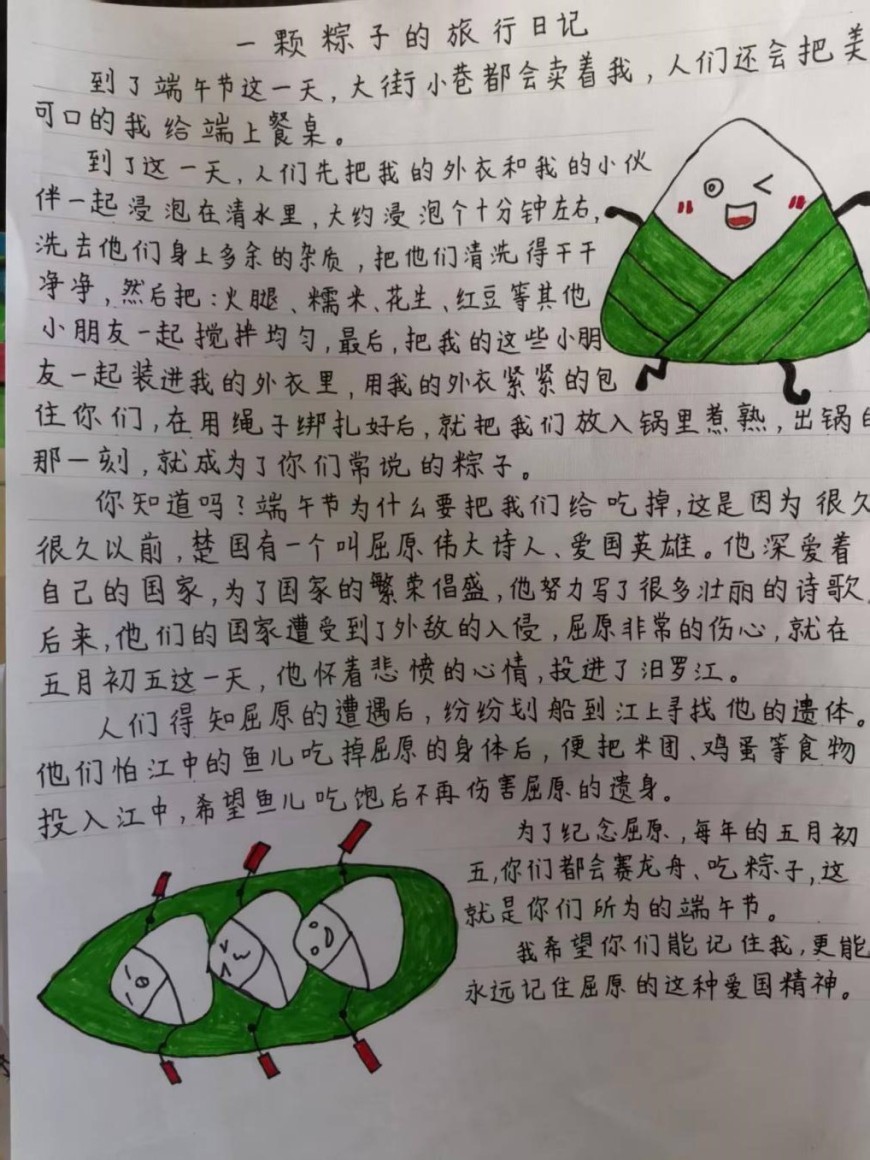 一颗粽子的旅行日记
到了端午节这一天，大街小巷都会卖着我，人们还会把美
可口的我给端上餐桌。
到了这一天，人们先把我的外衣和我的小伙
伴一起浸泡在清水里，大约浸泡个十分钟左右，
洗去他们身上多余的杂质，把他们清洗得干干
净净，然后把：火腿、糯米、花生、红豆等其他
小朋友一起搅拌均匀，最后，把我的这些小朋
友一起装进我的外衣里，用我的外衣紧紧的包
住你们，在用绳子绑扎好后，就把我们放入锅里煮熟，出锅
那一刻，就成为了你们常说的粽子。
你知道吗？端午节为什么要把我们给吃掉，这是因为很久
很久以前，楚国有一个叫屈原伟大诗人、爱国英雄。他深爱着
自己的国家，为了国家的繁荣倡盛，他努力写了很多壮丽的诗歌，
后来，他们的国家遭受到了外敌的入侵，屈原非常的伤心，就在
五月初五这一天，他怀着悲愤的心情，投进了汨罗江。
人们得知屈原的遭遇后，纷纷划船到江上寻找他的遗体。
他们怕江中的鱼儿吃掉屈原的身体后，便把米团、鸡蛋等食物
投入江中，希望鱼儿吃饱后不再伤害屈原的遗身。
为了纪念屈原，每年的五月初
五，你们都会赛龙舟、吃粽子，这
就是你们所为的端午节。
我希望你们能记住我，更能
永远记住屈原的这种爱国精神。